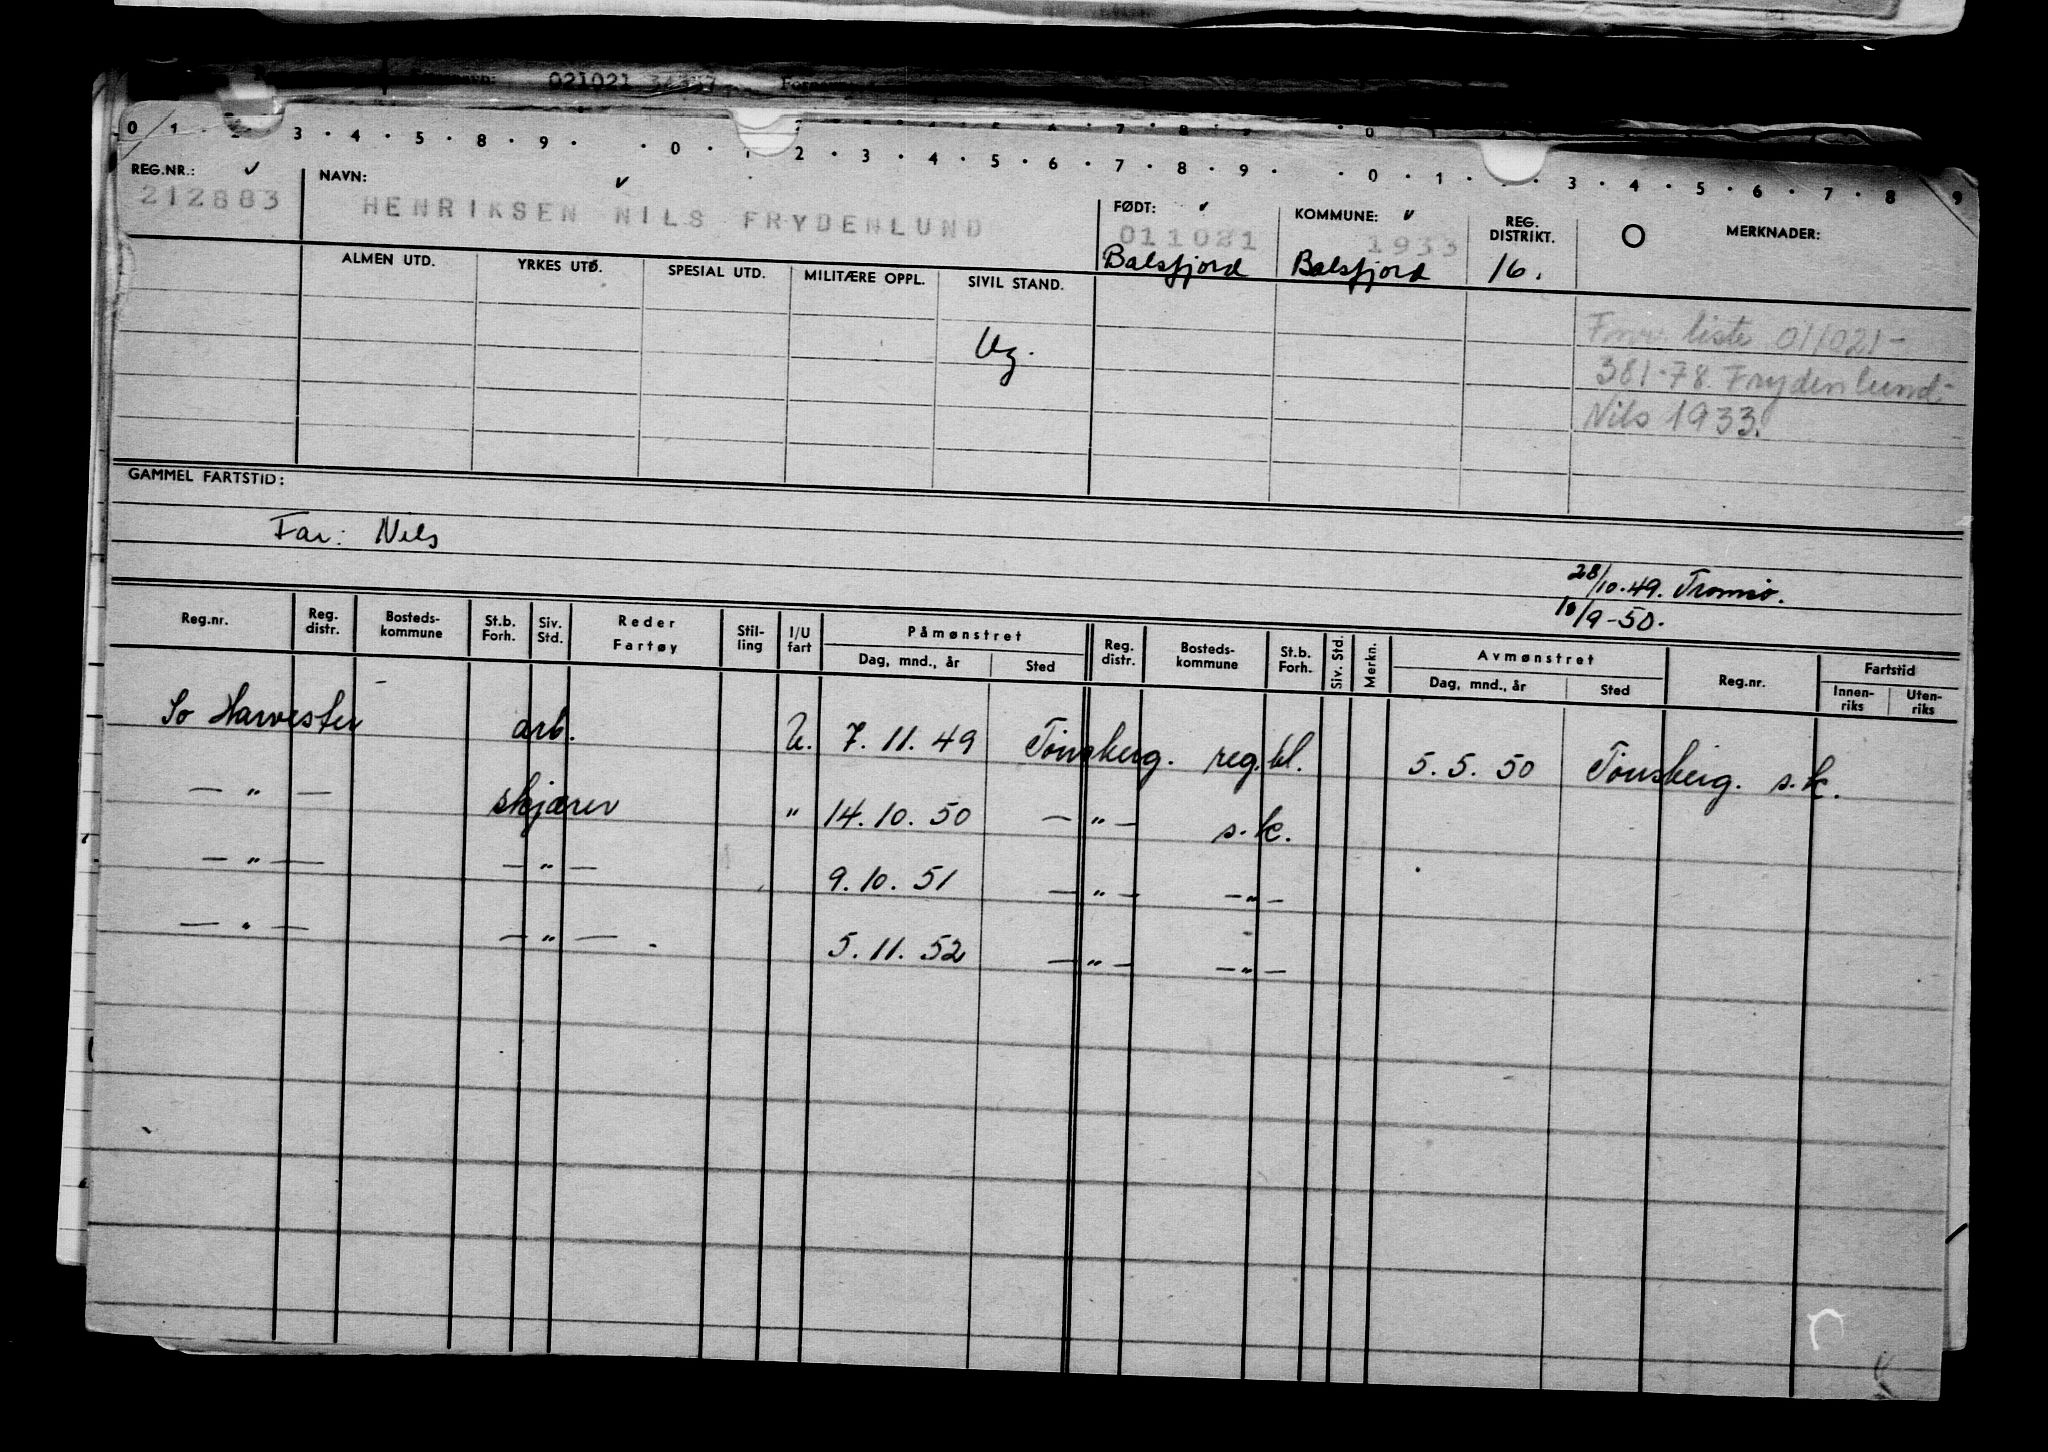 021021
0 1 2 3 · 4 · 5 · 8 · 9 · · 0 · 1 2 · 3 · 4 · 5 · 6 · 7 · 8 · 9 · · 0 · 1 · 3 · 4 · 5 · 6 · 7 · 8 9
REG.NR.: ✓ NAVN: ✓ FØDT: ✓ KOMMUNE: ✓ REG. DISTRIKT. O MERKNADER:
212883 HENRIKSEN NILS FRYDENLUND 011021 1933
Balsfjord Balsfjord 16.
ALMEN UTD. YRKES UTD. SPESIAL UTD. MILITÆRE OPPL. SIVIL STAND.
Ug.
liste 011021-
381-78. Frydenlund-
Nils 1933.
GAMMEL FARTSTID:
Far: Nils
28/10.49. Tromsø.
10/9-50.
Reg.nr. Reg. distr. Bosteds-kommune St.b. Forh. Siv. Std. Reder Fartøy Stil-ling I/U fart Påmønstret Reg. distr. Bosteds-kommune St.b. Forh. Siv. Std. Merkn. Avmønstret Reg.nr. Fartstid
Dag, mnd., år Sted Dag, mnd., år Sted Innen-riks Uten-riks
So Harvester arb. U. 7.11.49 Tønsberg. reg.bl. 5.5.50 Tønsberg. s.k.
— " — skjærer " 14.10.50 — " — s.k.
— " — — " — 9.10.51 — " — — " —
— " — — " — 5.11.52 — " — — " —